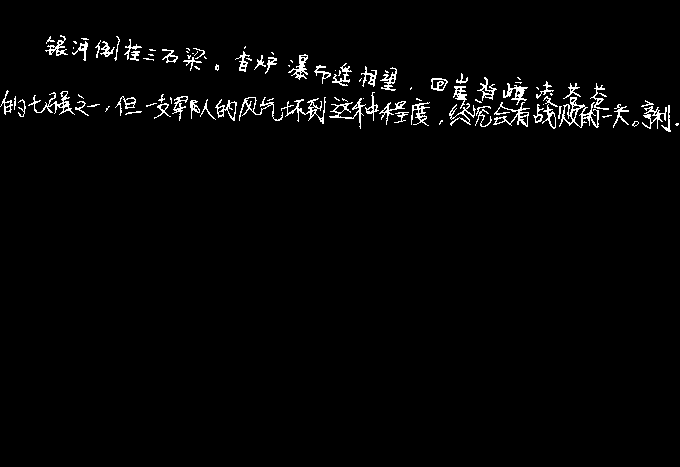 银河倒挂三石梁。香炉瀑布遥相望，回崖沓嶂凌苍苍
的七强之一，但一支军队的风气坏到这种程度，终究会有战败的一天。亨利.